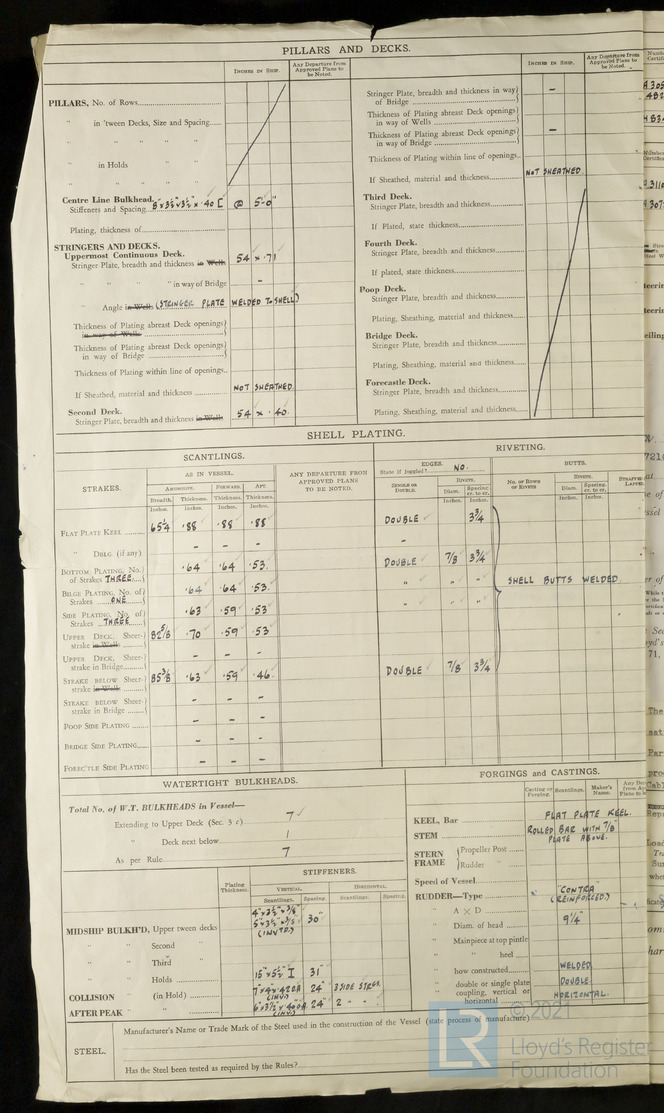 PILLARS AND DECKS.
INCHES IN SHIP. Any Departure from Approved Plans to be Noted.
PILLARS, No. of Rows
" in 'tween Decks, Size and Spacing
" " " "
" in Holds
" " " "
Centre Line Bulkhead.
Stiffeners and Spacing 8"×3½"×3½"×·40 [ @ 5'-0"
Plating, thickness of
STRINGERS AND DECKS.
Uppermost Continuous Deck.
Stringer Plate, breadth and thickness in Well 54 × ·71
" " " " in way of Bridge -
" Angle in Well (STRINGER PLATE WELDED TO SHELL)
Thickness of Plating abreast Deck openings
in way of Wells
Thickness of Plating abreast Deck openings
in way of Bridge
Thickness of Plating within line of openings
If Sheathed, material and thickness NOT SHEATHED.
Second Deck.
Stringer Plate, breadth and thickness in Well 54 × ·40
INCHES IN SHIP. Any Departure from Approved Plans to be Noted.
Stringer Plate, breadth and thickness in way
of Bridge -
Thickness of Plating abreast Deck openings
in way of Wells
Thickness of Plating abreast Deck openings
in way of Bridge -
Thickness of Plating within line of openings
If Sheathed, material and thickness NOT SHEATHED
Third Deck.
Stringer Plate, breadth and thickness
If Plated, state thickness
Fourth Deck.
Stringer Plate, breadth and thickness
If plated, state thickness
Poop Deck.
Stringer Plate, breadth and thickness
Plating, Sheathing, material and thickness
Bridge Deck.
Stringer Plate, breadth and thickness
Plating, Sheathing, material and thickness
Forecastle Deck.
Stringer Plate, breadth and thickness
Plating, Sheathing, material and thickness
SHELL PLATING.
SCANTLINGS. RIVETING.
STRAKES. AS IN VESSEL. ANY DEPARTURE FROM APPROVED PLANS TO BE NOTED.
AMIDSHIPS. FORWARD. AFT.
Breadth. Thickness. Thickness. Thickness.
Inches. Inches. Inches. Inches.
EDGES. State if joggled? NO.
SINGLE OR DOUBLE. RIVETS. Diam. Spacing cr. to cr.
Inches. Inches.
BUTTS.
NO. OF ROWS OF RIVETS RIVETS. Diam. Spacing cr. to cr.
Inches. Inches.
FLAT PLATE KEEL ·88 ·88 ·88 DOUBLE 3¾
" DBLG. (if any) - - - -
BOTTOM PLATING, No. of Strakes THREE ·64 ·64 ·53. DOUBLE 7/8 3¾
BILGE PLATING, No. of Strakes ONE ·64 ·64 ·53. " " " SHELL BUTTS WELDED
SIDE PLATING, No. of Strakes THREE ·63 ·59 ·53 " " "
UPPER DECK, Sheerstrake in Well 82⅝ ·70 ·59 ·53
UPPER DECK, Sheerstrake in Bridge - - -
STRAKE BELOW Sheerstrake in Well 85⅜ ·63 ·59 ·46 DOUBLE 7/8 3¾
STRAKE BELOW Sheerstrake in Bridge - - -
POOP SIDE PLATING - - -
BRIDGE SIDE PLATING - - -
FORE'TLE SIDE PLATING - - -
WATERTIGHT BULKHEADS.
Total No. of W.T. BULKHEADS in Vessel—
Extending to Upper Deck (Sec. 3 c) 7
" Deck next below 1
As per Rule 7
Plating Thickness. STIFFENERS.
VERTICAL. HORIZONTAL.
Scantlings. Spacing. Scantlings. Spacing.
MIDSHIP BULKH'D, Upper tween decks 30"
" " Second "
" " Third "
" " Holds 31"
COLLISION " (in Hold) 24"
AFTER PEAK " " 24"
FORGINGS and CASTINGS.
Casting or Forging. Scantlings. Maker's Name.
KEEL, Bar FLAT PLATE KEEL.
STEM ROLLED BAR WITH 7/8" PLATE ABOVE.
STERN FRAME Propeller Post
Rudder "
Speed of Vessel
RUDDER—Type "CONTRA" (REINFORCED)
" A × D
" Diam. of head 9¼"
" Mainpiece at top pintle
" " heel
" how constructed WELDED
" double or single plate DOUBLE
" coupling, vertical or horizontal HORIZONTAL.
STEEL. Manufacturer's Name or Trade Mark of the Steel used in the construction of the Vessel (state process of manufacture)
Has the Steel been tested as required by the Rules?
LR
© 2021
Lloyd's Register
Foundation